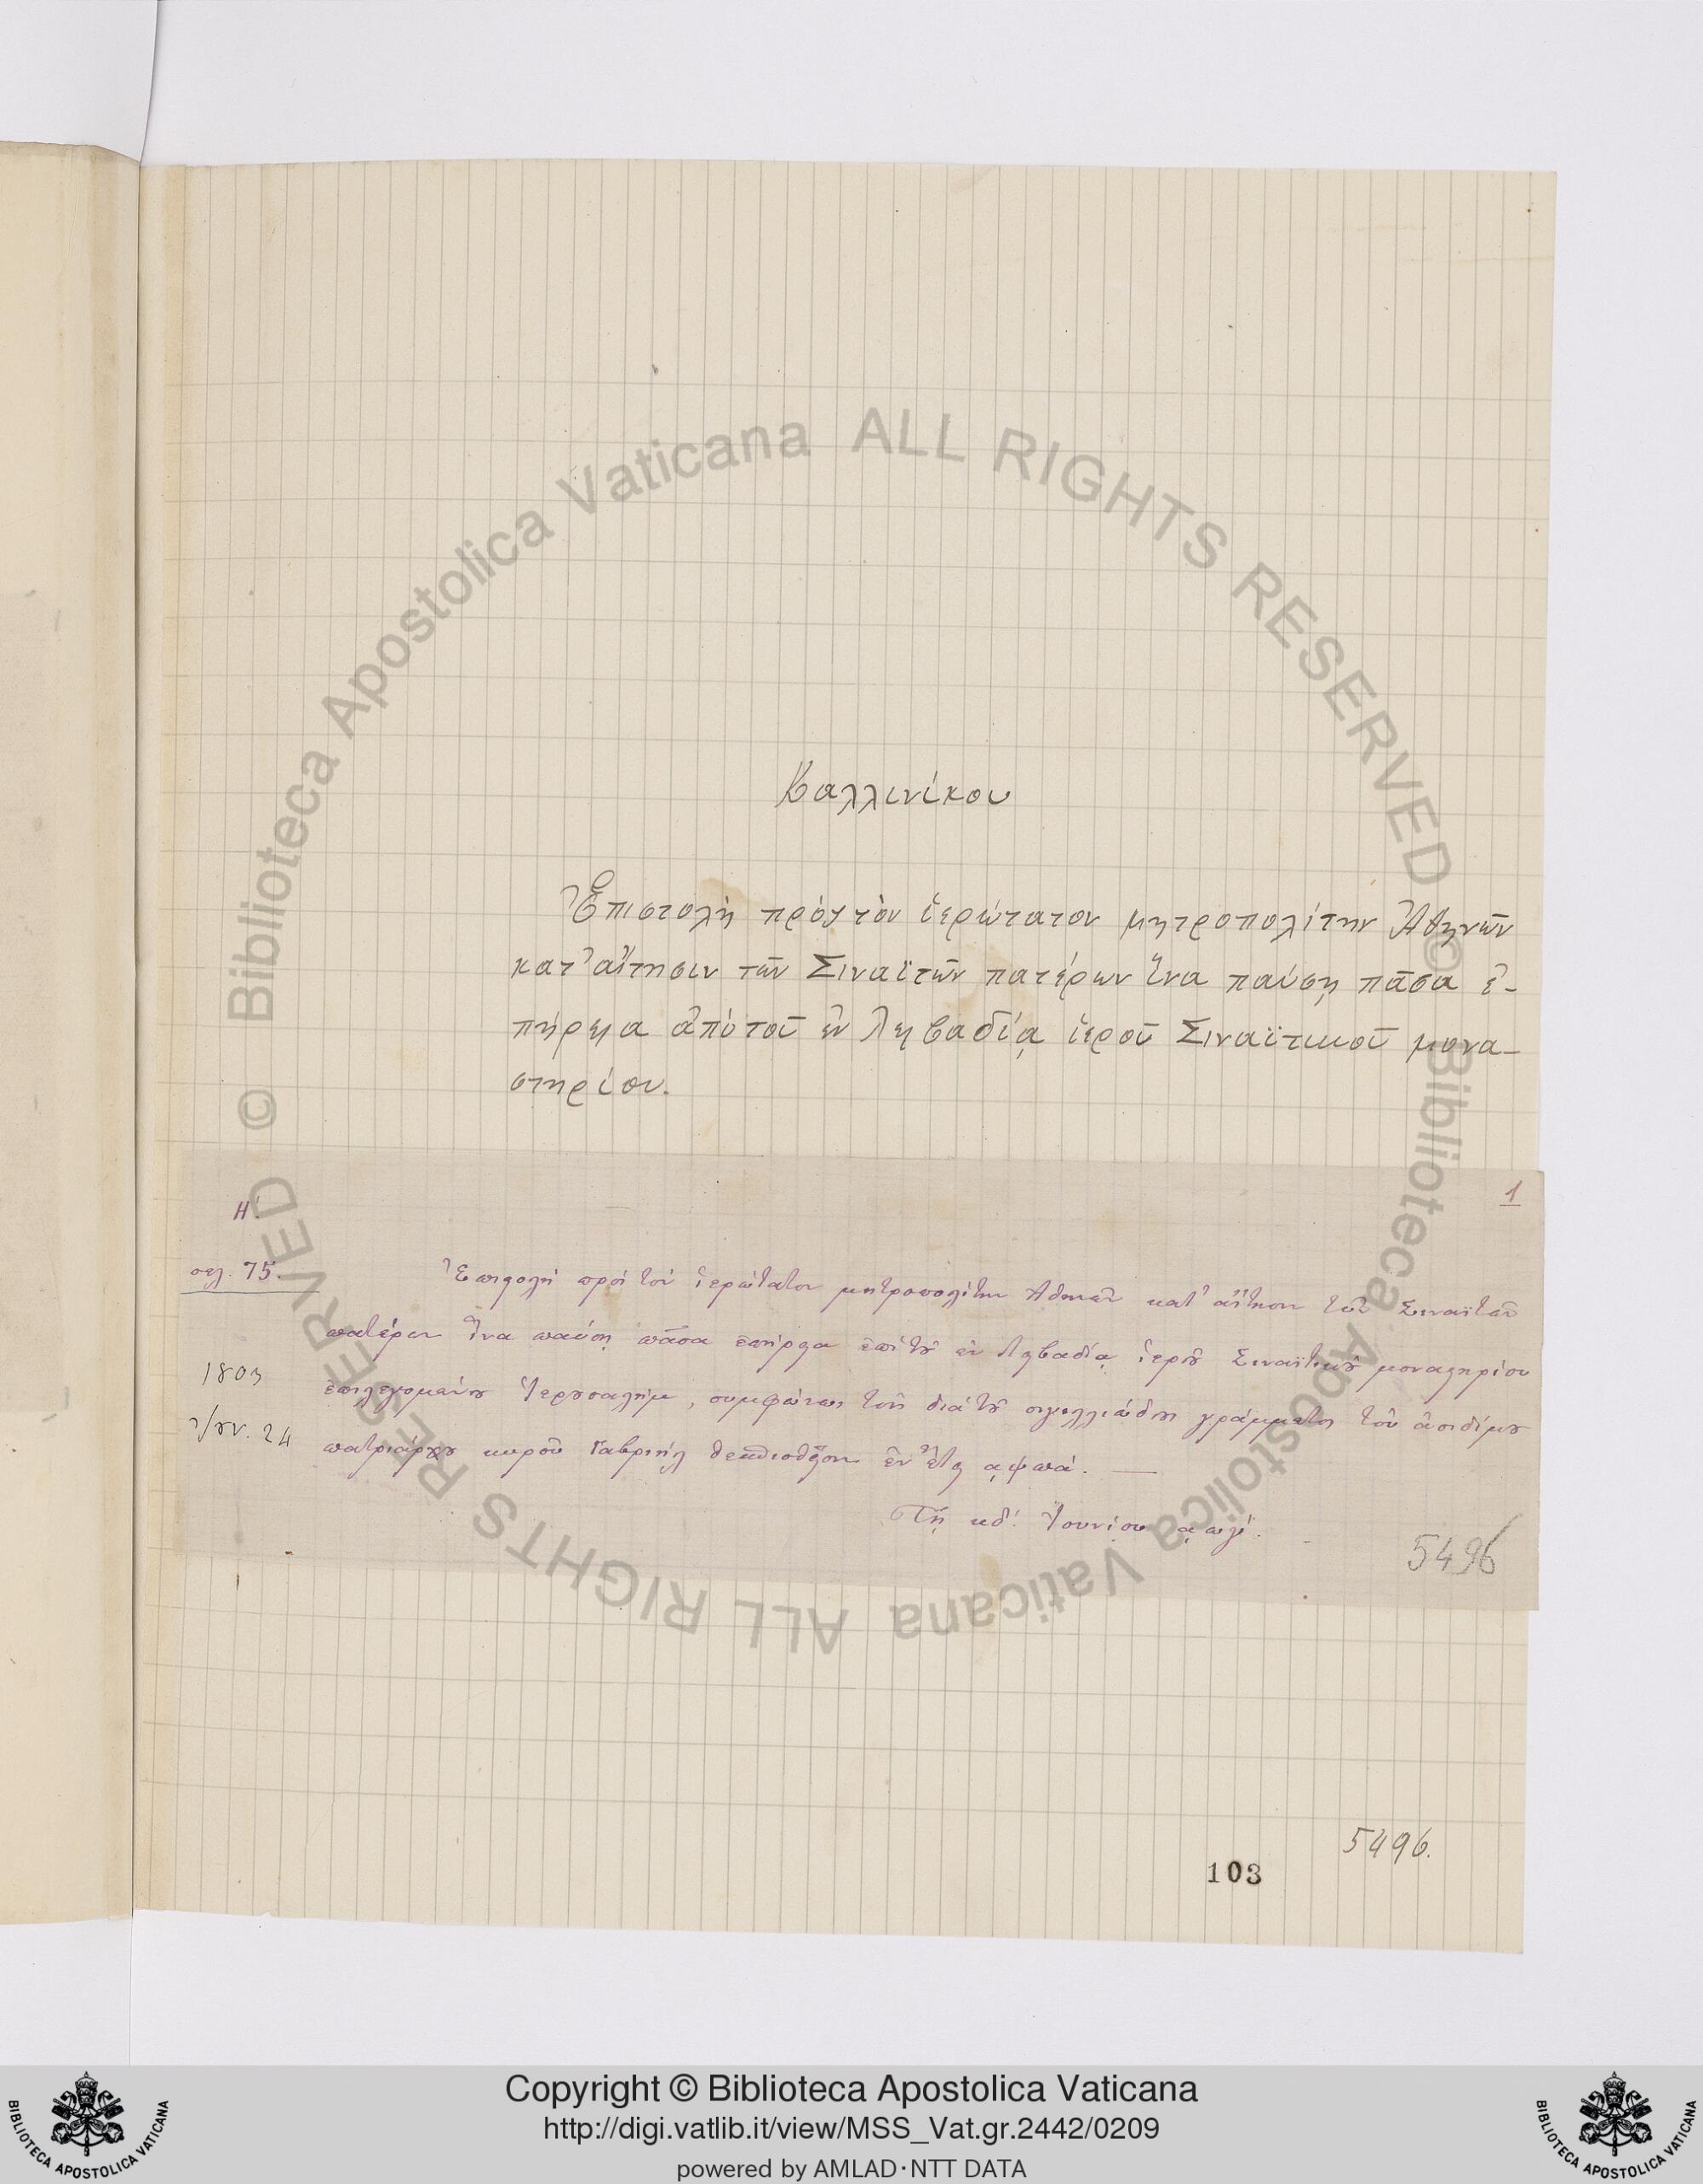 Καλλινίκου
Ἐπιστολὴ πρὸς τὸν ἱερώτατον μητροπολίτην Ἀθηνῶν
κατ' αἴτησιν τῶν Σιναϊτῶν πατέρων ἵνα παύσῃ πᾶσα ἐ-
πήρεια ἀπὸ τοῦ ἐν Λειβαδίᾳ ἱεροῦ Σιναϊτικοῦ μονα-
στηρίου.
1
Η'.
σελ. 75.
Ἐπιστολὴ πρὸς τὸν ἱερώτατον μητροπολίτην Ἀθηνῶν κατ' αἴτησιν τῶν Σιναϊτῶν
πατέρων ἵνα παύσῃ πᾶσα ἐπήρεια ἐπὶ τοῦ ἐν Λειβαδίᾳ ἱεροῦ Σιναϊτικοῦ μοναστηρίου
1803
ἐπιλεγομένου Ἱερουσαλήμ, συμφώνως τοῖς διὰ τοῦ σιγιλλιώδους γράμματος τοῦ ἀοιδίμου
Ἰουν. 24
πατριάρχου κυροῦ Γαβριὴλ θεσπισθεῖσιν ἐν ἔτει ͵αψπα'. —
Τῇ κδ'. Ἰουνίου ͵αωγ'.
5496
5496.
103
Copyright © Biblioteca Apostolica Vaticana
http://digi.vatlib.it/view/MSS_Vat.gr.2442/0209
powered by AMLAD·NTT DATA
BIBLIOTECA APOSTOLICA VATICANA
BIBLIOTECA APOSTOLICA VATICANA
© Biblioteca Apostolica Vaticana ALL RIGHTS RESERVED
© Biblioteca Apostolica Vaticana ALL RIGHTS RESERVED